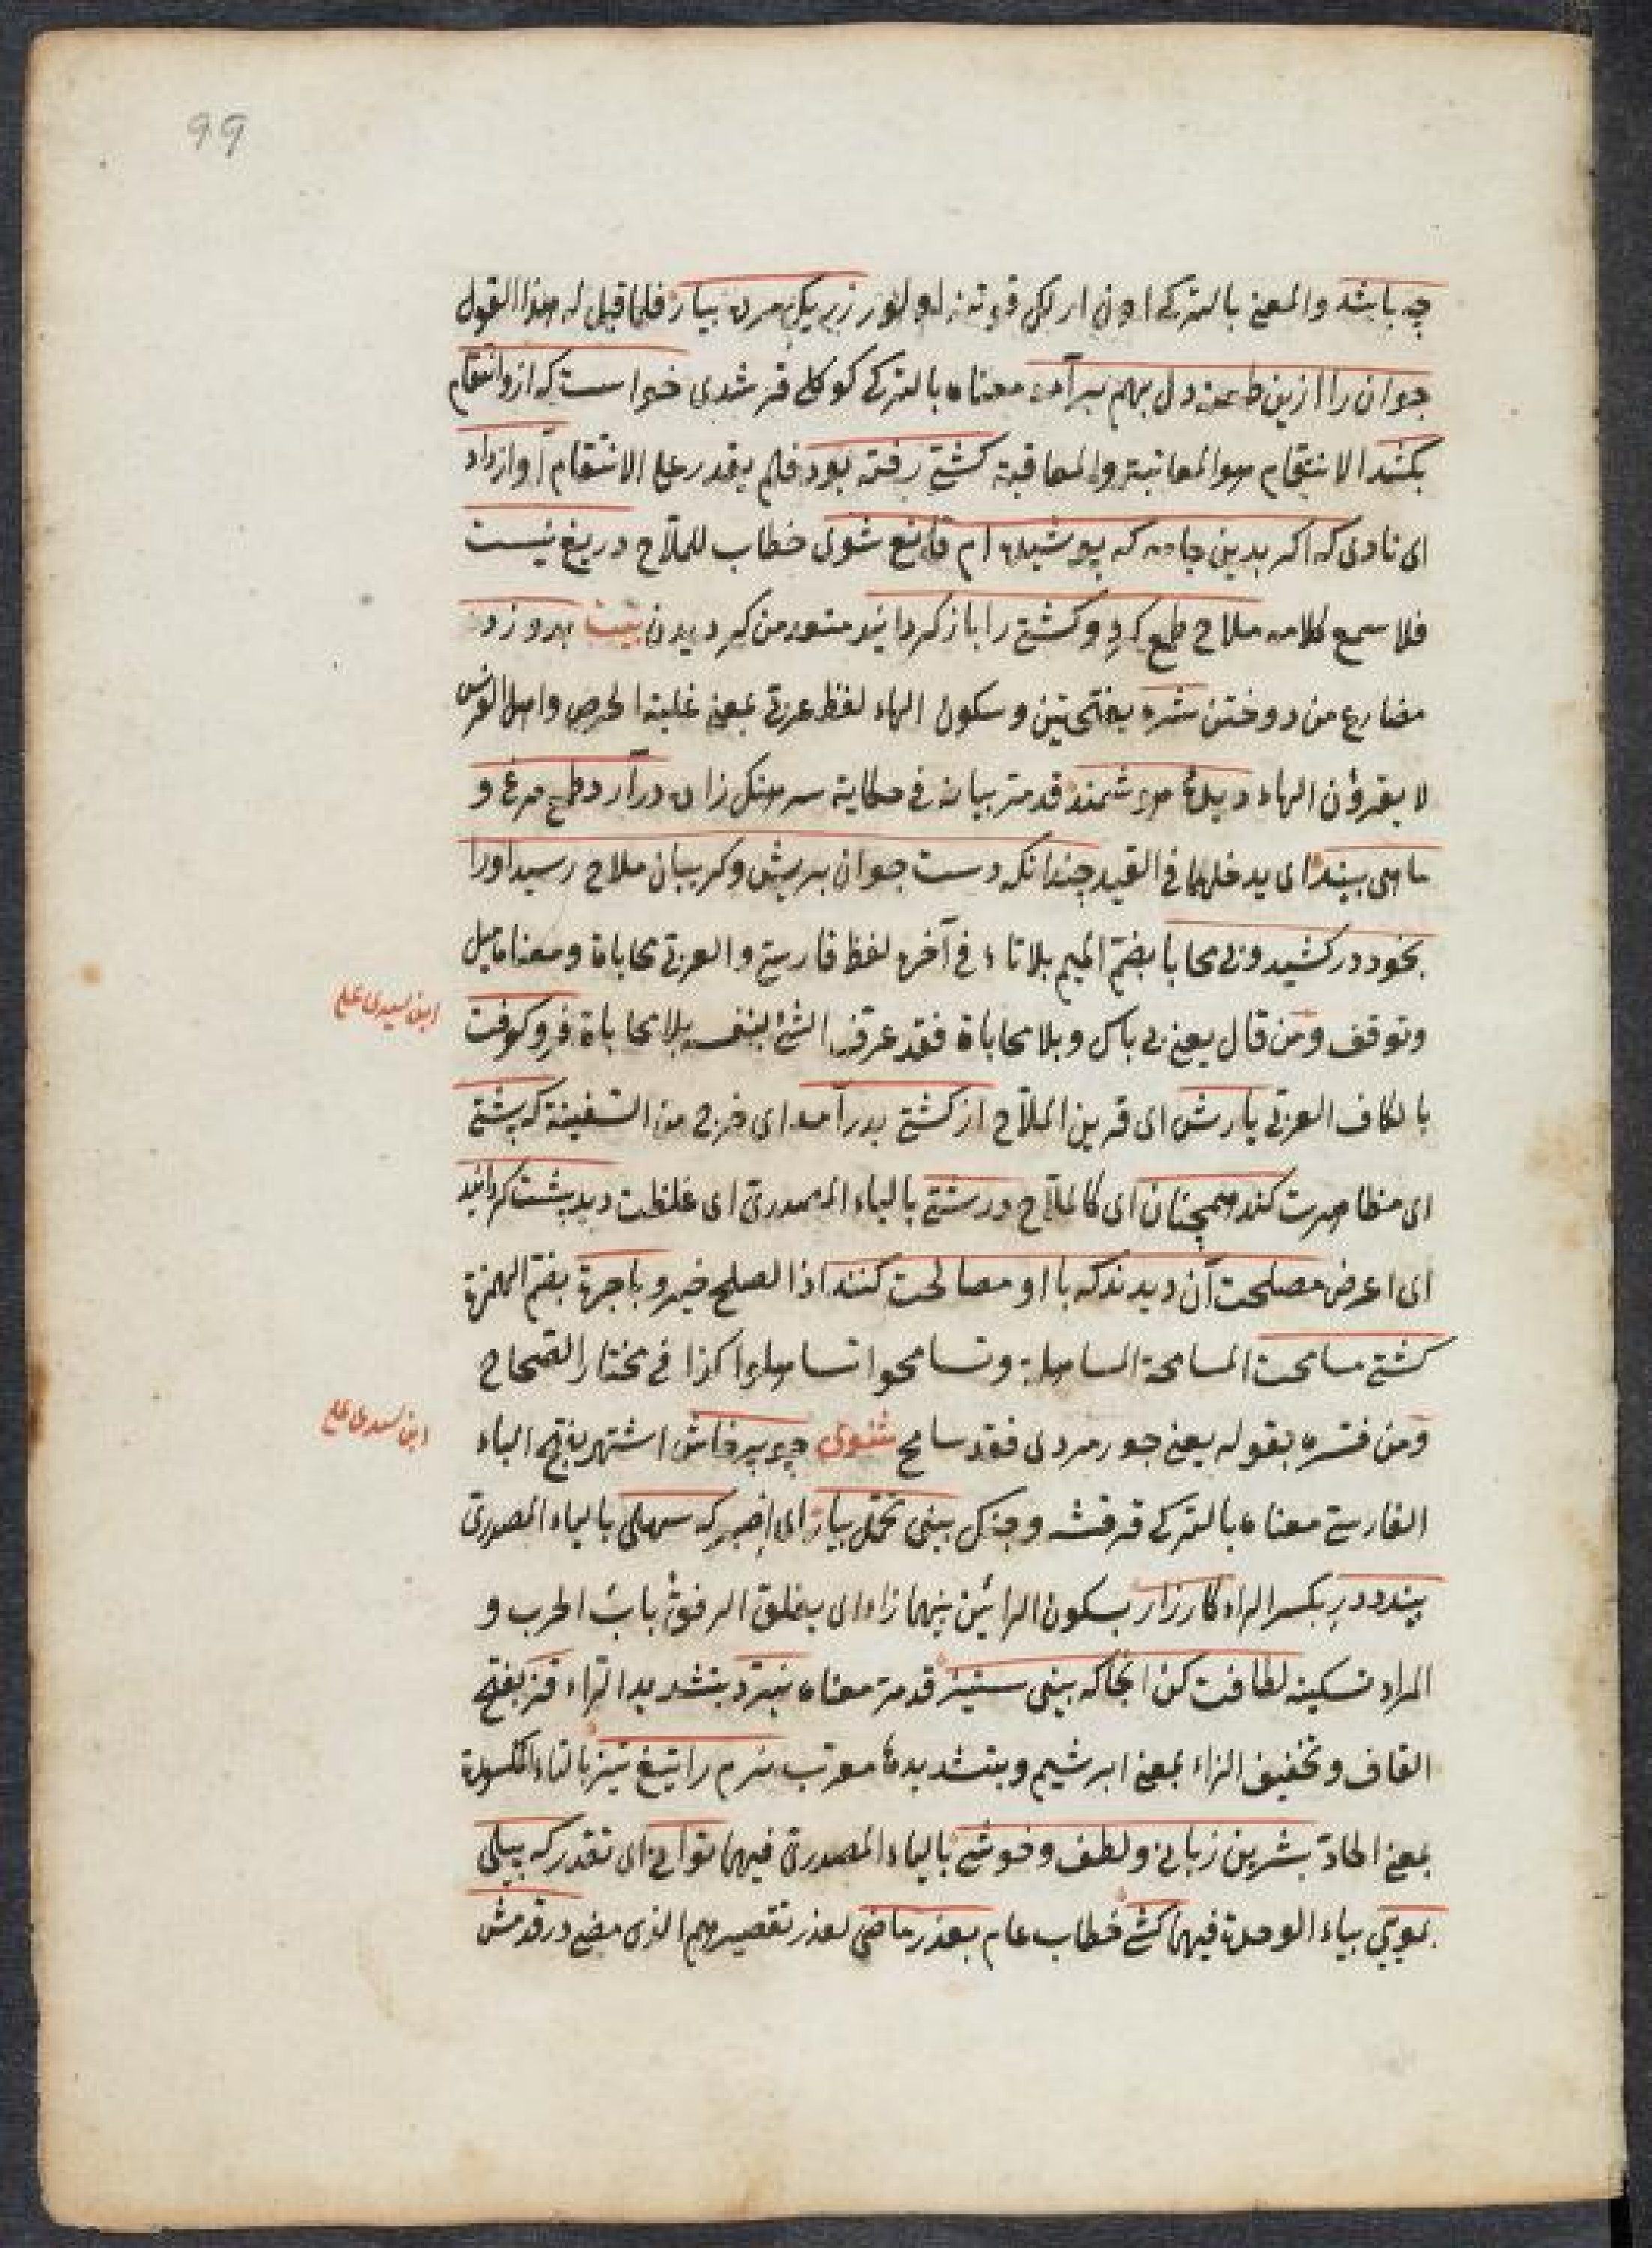 99
چه باشد والمعنى بالتركى اون ار لك قوتنه اولور زر يك مرده بيار فلما قيل له هذا القول
جوان را ازين طعنه دل بهم برآمد معناه بالتركى كوكلى قرشدى خواست كه ازو انتقام
بكشد الانتقام هو المعاتبة والمعاقبة كشتى رفته بود فلم يقدر على الانتقام آواز داد
اى نادى كه اكر بدين جامه كه پوشيده ام قانع شوى خطاب للملّاح دريغ نيست
فلما سمع كلامه ملاح طمع كرد وكشتى را باز كردانيد متعد من كرديدن بيت بدوزد
مضارع من دوختن شره بفتحتين وسكون الهاء لفظ عربى بمعنى غلبة الحرص واهل الفرس
لا يقرؤن الهاء ديدهٔ هوشمند قد مرّ بيانه فى حكاية سرهنك زاده درآرد طمع مرغ و
ماهى ببند اى يدخلهما فى القيد چندانكه دست جوان بريش وكريبان ملاح رسيد اورا
بخود دركشيد وبى محابا بضمّ الميم بلا تاء فى آخره لفظ فارسى والعربى محاباة ومعناه ميل
وتوقف ومن قال يعنى بى باك وبلا محاباة فقد عرّف الشئ بنفسه بلا محاباة فرو كوفت
ابن سيدى على
بالكاف العربى يارش اى قرين الملّاح از كشتى بدر آمد اى خرج من السفينة كه پشتى
اى مظاهرت كند همچنان اى كالملّاح درشتى بالياء المصدرى اى غلظت ديد پشت كردانيد
اى اعرض مصلحت آن ديدند كه با او مصالحت كنند اذا الصلح خير وباجرهٔ بضم الهمزة
كشتى مسامحت المسامحة المساهلة وتسامحوا تساهلوا كذا فى مختار الصحاح
ومن فسّره بقوله يعنى جورمردى فقد سامح مثنوى چو پرخاش اشتهر بفتح الباء
ابن سيدى على
الفارسى معناه بالتركى قرقشه وجنك بينى تحمّل بيار اى اصبر كه سهلى بالياء المصدرى
ببندد در بكسر الراء كارزار بسكون الرائين بينهما زاء اى يغلق الرفق باب الحرب و
المراد تسكينه لطافت كن انجا كه بينى ستيز قد مرّ معناه نبرّد بتشديد الرّاء قز بفتح
القاف وتخفيف الزاء بمعنى ابرشيم وبتشديدها معرّب نرم را تيغ تيز بالتاء المكسورة
بمعنى الحادّ بشرين زبانى ولطف وخوشى بالياء المصدرى فيهما توانى اى تقدر كه پيلى
بمويى بياء الوحدة فيهما كشى خطاب عام بعذر ماضى لعذر تقصيرهم الذى مضى در قدمش